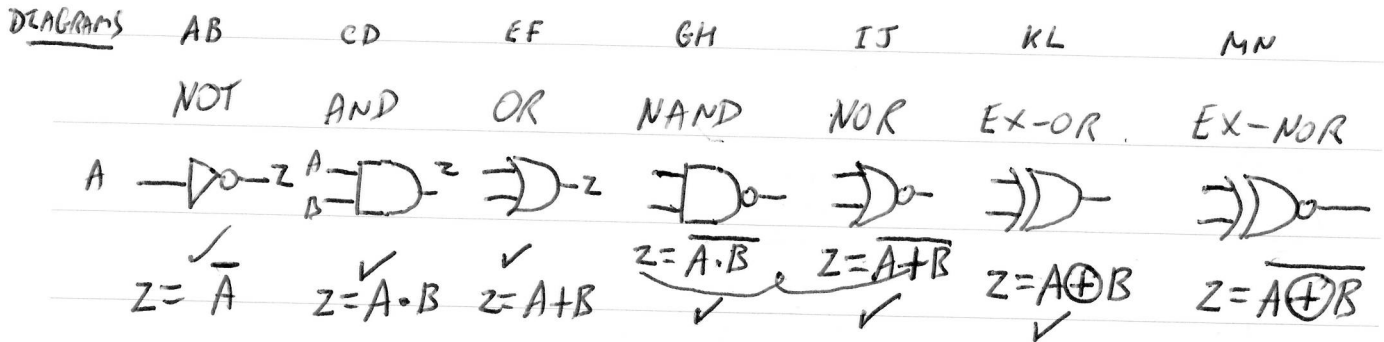 DIAGRAMS AB CD EF GH IJ KL MN
NOT AND OR NAND NOR EX-OR. EX-NOR
A Z A B Z Z
Z = A̅ Z = A·B Z = A+B Z = A̅·̅B̅ Z = A̅+̅B̅ Z = A⊕B Z = A̅⊕̅B̅